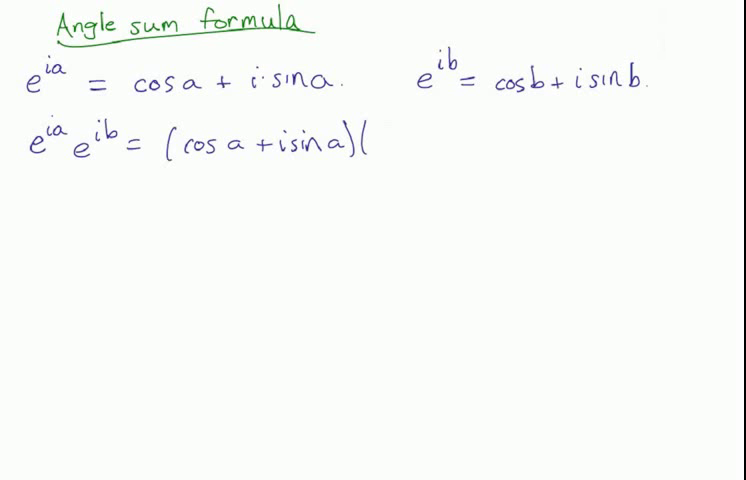 Angle sum formula
e^{ia} = cos a + i·sin a. e^{ib} = cos b + i sin b.
e^{ia} e^{ib} = (cos a + i sin a)(